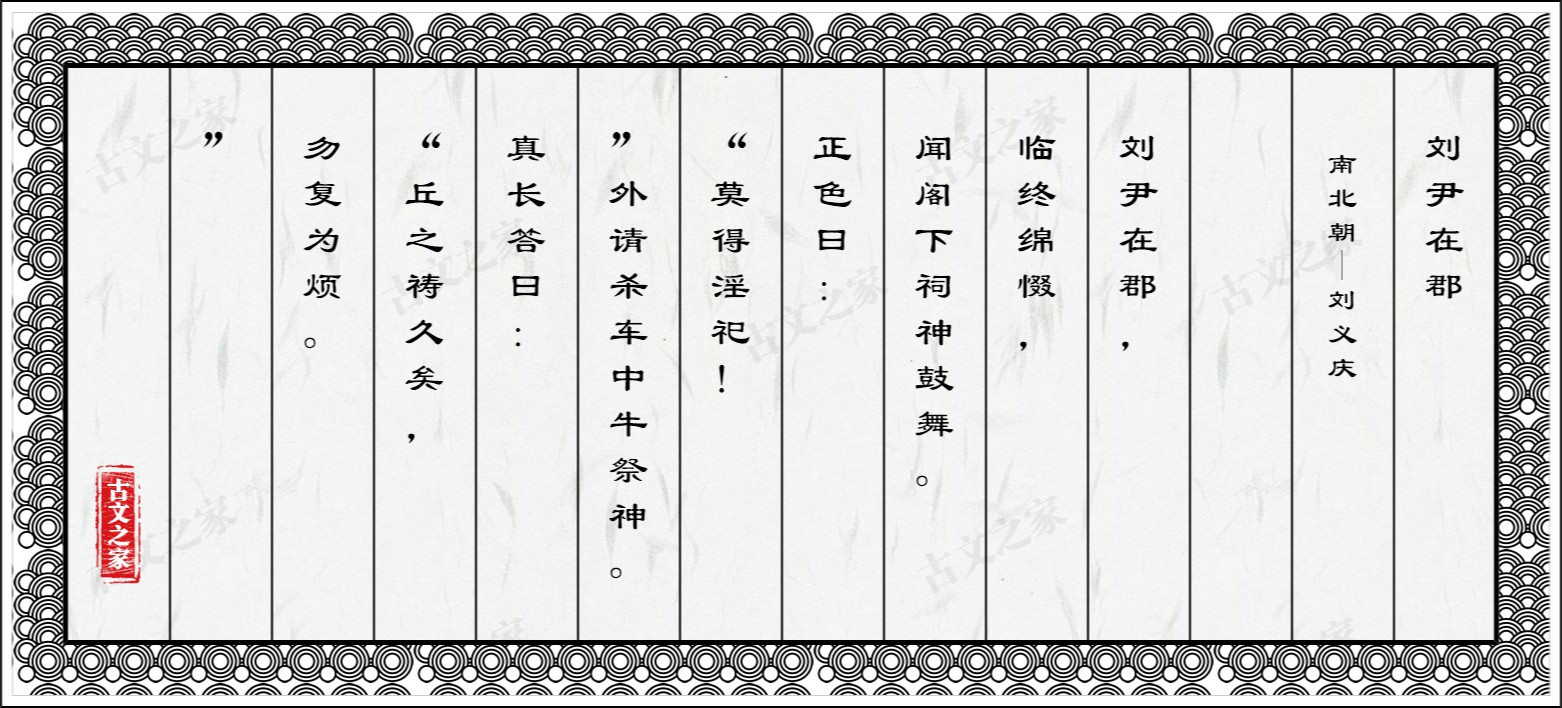 刘尹在郡
南北朝—刘义庆
刘尹在郡，
临终绵惙，
闻阁下祠神鼓舞。
正色曰：
“莫得淫祀！
”外请杀车中牛祭神。
真长答曰：
“丘之祷久矣，
勿复为烦。
”
古文之家